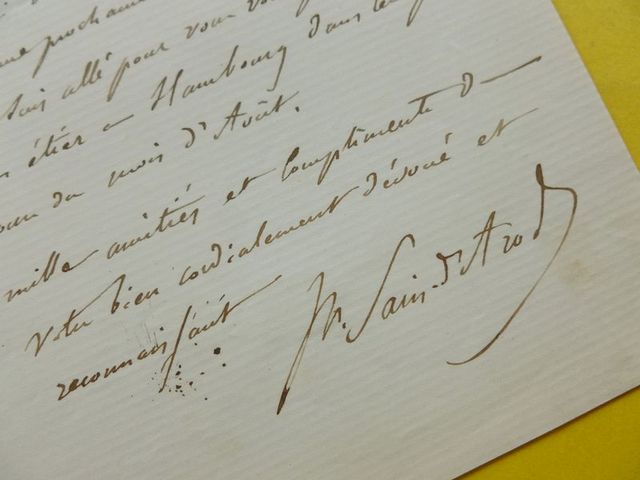 me prochaine
suis allé pour vous vo
étiez à Hambourg dans le
du mois d'Août.
mille amitiés et compliments d
Votre bien cordialement dévoué et
reconnaissant
Pr. Sain-d'Arod